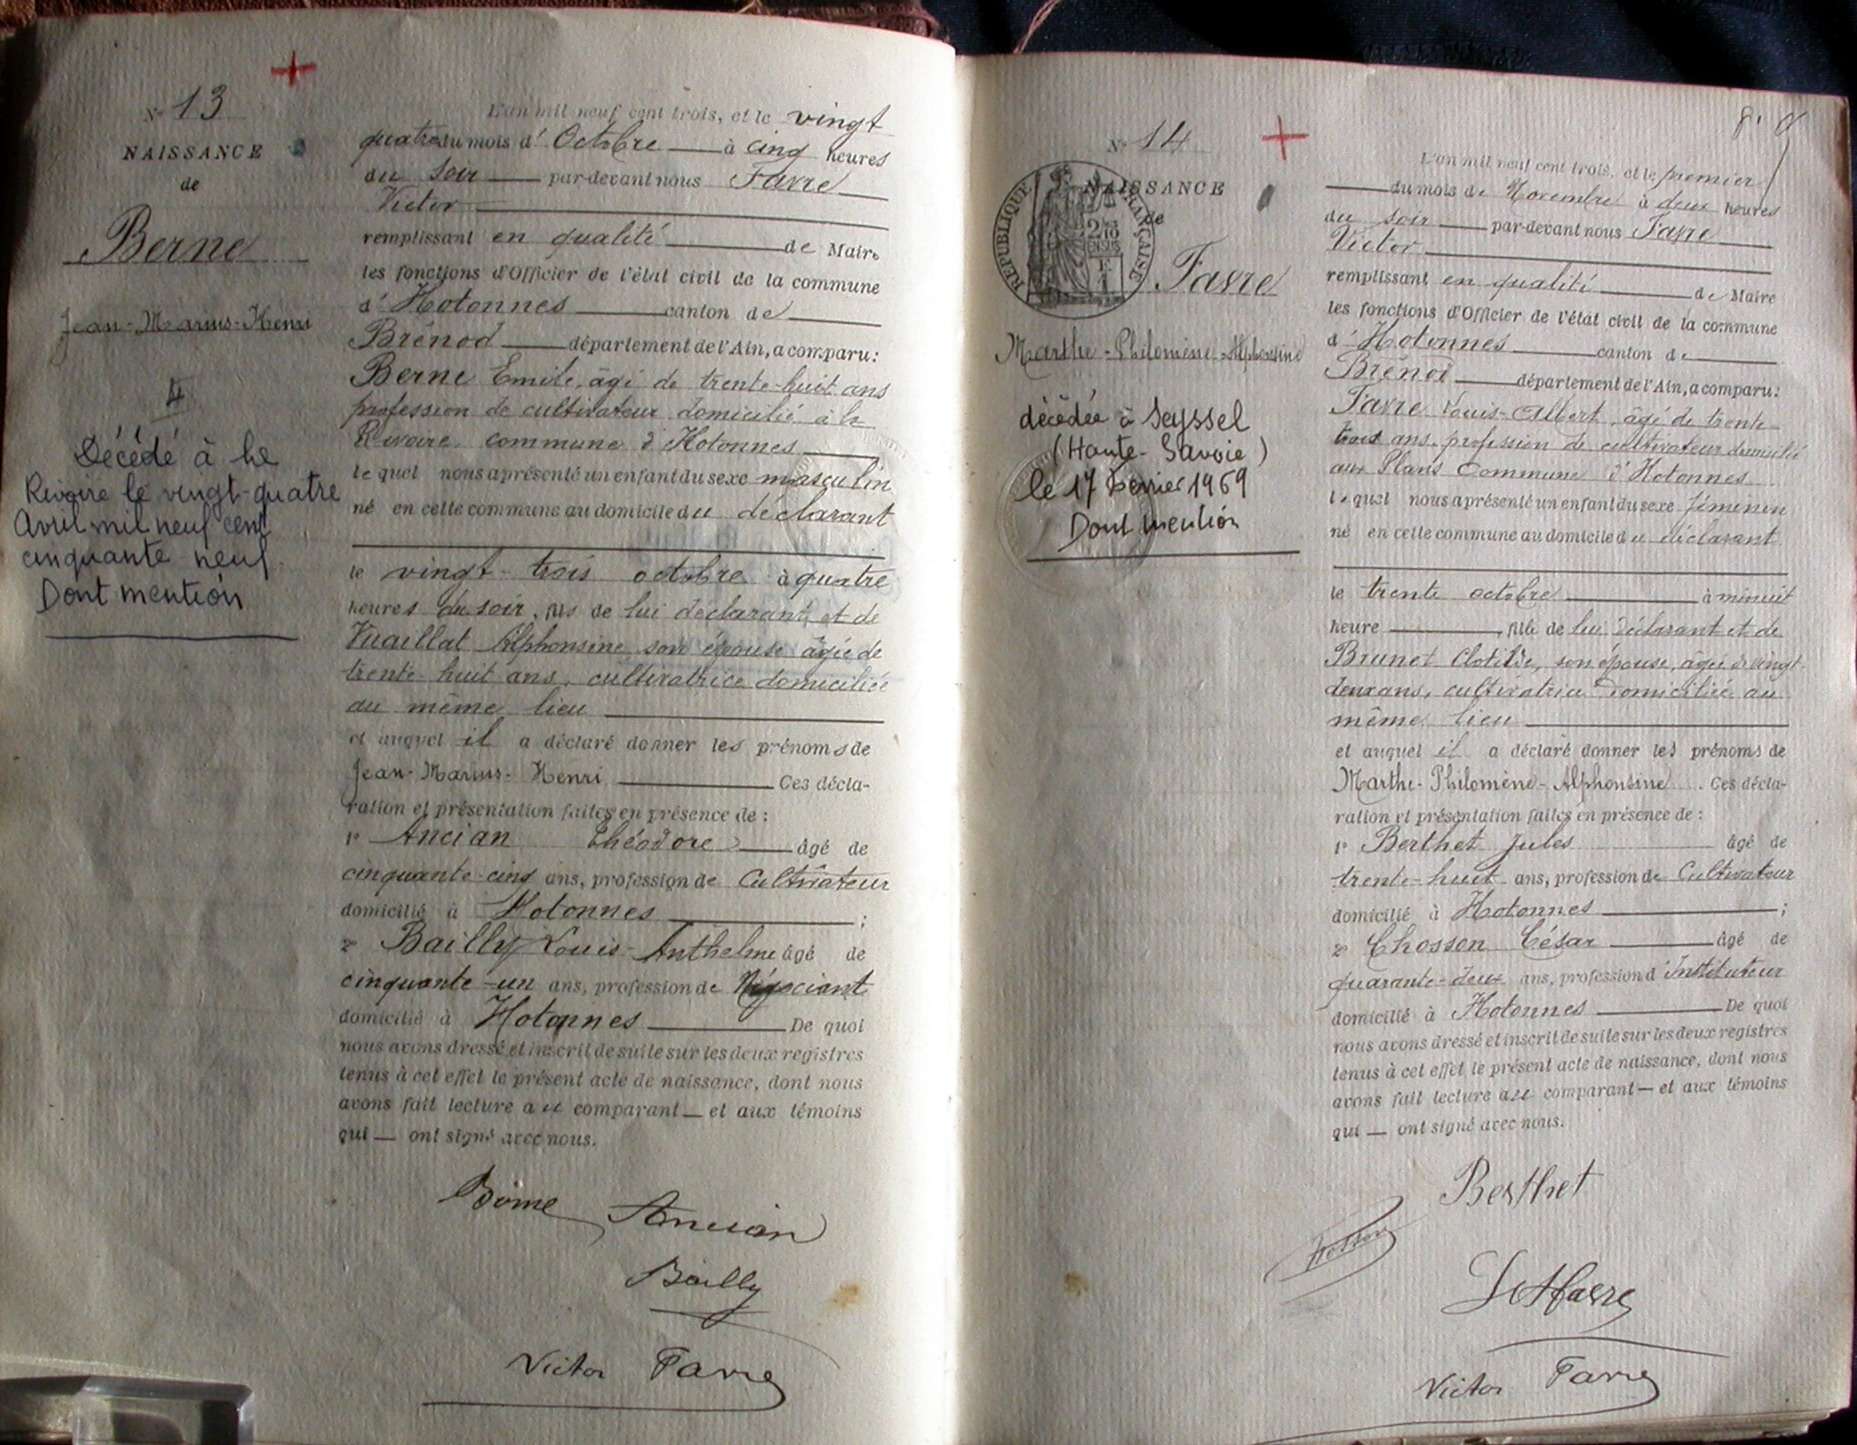 N° 13
NAISSANCE
de
Berne
Jean-Marius-Henri
4
Décédé à la
Rivoire le vingt-quatre
Avril mil neuf cent
cinquante neuf
Dont mention
L'an mil neuf cent trois, et le vingt
quatre du mois d'Octobre à cinq heures
du soir par-devant nous Favre
Victor
remplissant en qualité de Maire
les fonctions d'Officier de l'état civil de la commune
d'Hotonnes canton de
Brénod département de l'Ain, a comparu :
Berne Emile, âgé de trente-huit ans
profession de cultivateur domicilié à la
Rivoire commune d'Hotonnes
lequel nous a présenté un enfant du sexe masculin
né en cette commune au domicile du déclarant
le vingt-trois octobre à quatre
heures du soir, fils de lui déclarant et de
Vuaillat Alphonsine, son épouse âgée de
trente-huit ans, cultivatrice domiciliée
au même lieu
et auquel il a déclaré donner les prénoms de
Jean-Marius-Henri Ces décla-
ration et présentation faites en présence de :
1° Ancian Théodore âgé de
cinquante-cinq ans, profession de Cultivateur
domicilié à Hotonnes ;
2° Bailly Louis-Anthelme âgé de
cinquante-un ans, profession de Négociant
domicilié à Hotonnes De quoi
nous avons dressé et inscrit de suite sur les deux registres
tenus à cet effet le présent acte de naissance, dont nous
avons fait lecture au comparant et aux témoins
qui ont signé avec nous.
Ancian
Bailly
Victor Favre
N° 14
NAISSANCE
de
RÉPUBLIQUE FRANÇAISE
Favre
Marthe-Philomène-Alphonsine
décédée à Seyssel
(Haute-Savoie)
le 17 Février 1969
Dont mention
L'an mil neuf cent trois, et le premier
du mois de Novembre à deux heures
du soir par-devant nous Favre
Victor
remplissant en qualité de Maire
les fonctions d'Officier de l'état civil de la commune
d'Hotonnes canton de
Brénod département de l'Ain, a comparu :
Favre Louis-Albert, âgé de trente
trois ans, profession de cultivateur domicilié
aux Plans Commune d'Hotonnes
lequel nous a présenté un enfant du sexe féminin
né en cette commune au domicile du déclarant
le trente octobre à minuit
heure, fille de lui déclarant et de
Brunet Clotilde, son épouse, âgée de vingt-
deux ans, cultivatrice domiciliée au
même lieu
et auquel il a déclaré donner les prénoms de
Marthe-Philomène-Alphonsine. Ces décla-
ration et présentation faites en présence de :
1° Berthet Jules âgé de
trente-huit ans, profession de Cultivateur
domicilié à Hotonnes ;
2° Chosson César âgé de
quarante-deux ans, profession d'Instituteur
domicilié à Hotonnes De quoi
nous avons dressé et inscrit de suite sur les deux registres
tenus à cet effet le présent acte de naissance, dont nous
avons fait lecture au comparant et aux témoins
qui ont signé avec nous.
Berthet
Chosson
Victor Favre